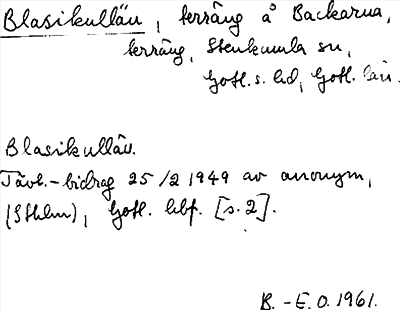 Blasikulläu, terräng å Backarna,
terräng, Stenkumla sn,
Gotl. s. hd, Gotl. län.
Blasikulläu.
Tävl.-bidrag 25/2 1949 av anonym,
(Sthlm), Gotl. hbf. [s. 2].
B.-E.O. 1961.